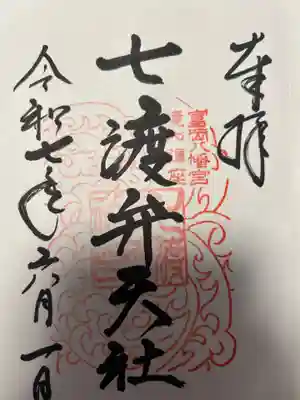 奉拝
富岡八幡宮
七渡弁天社
令和七年六月一日